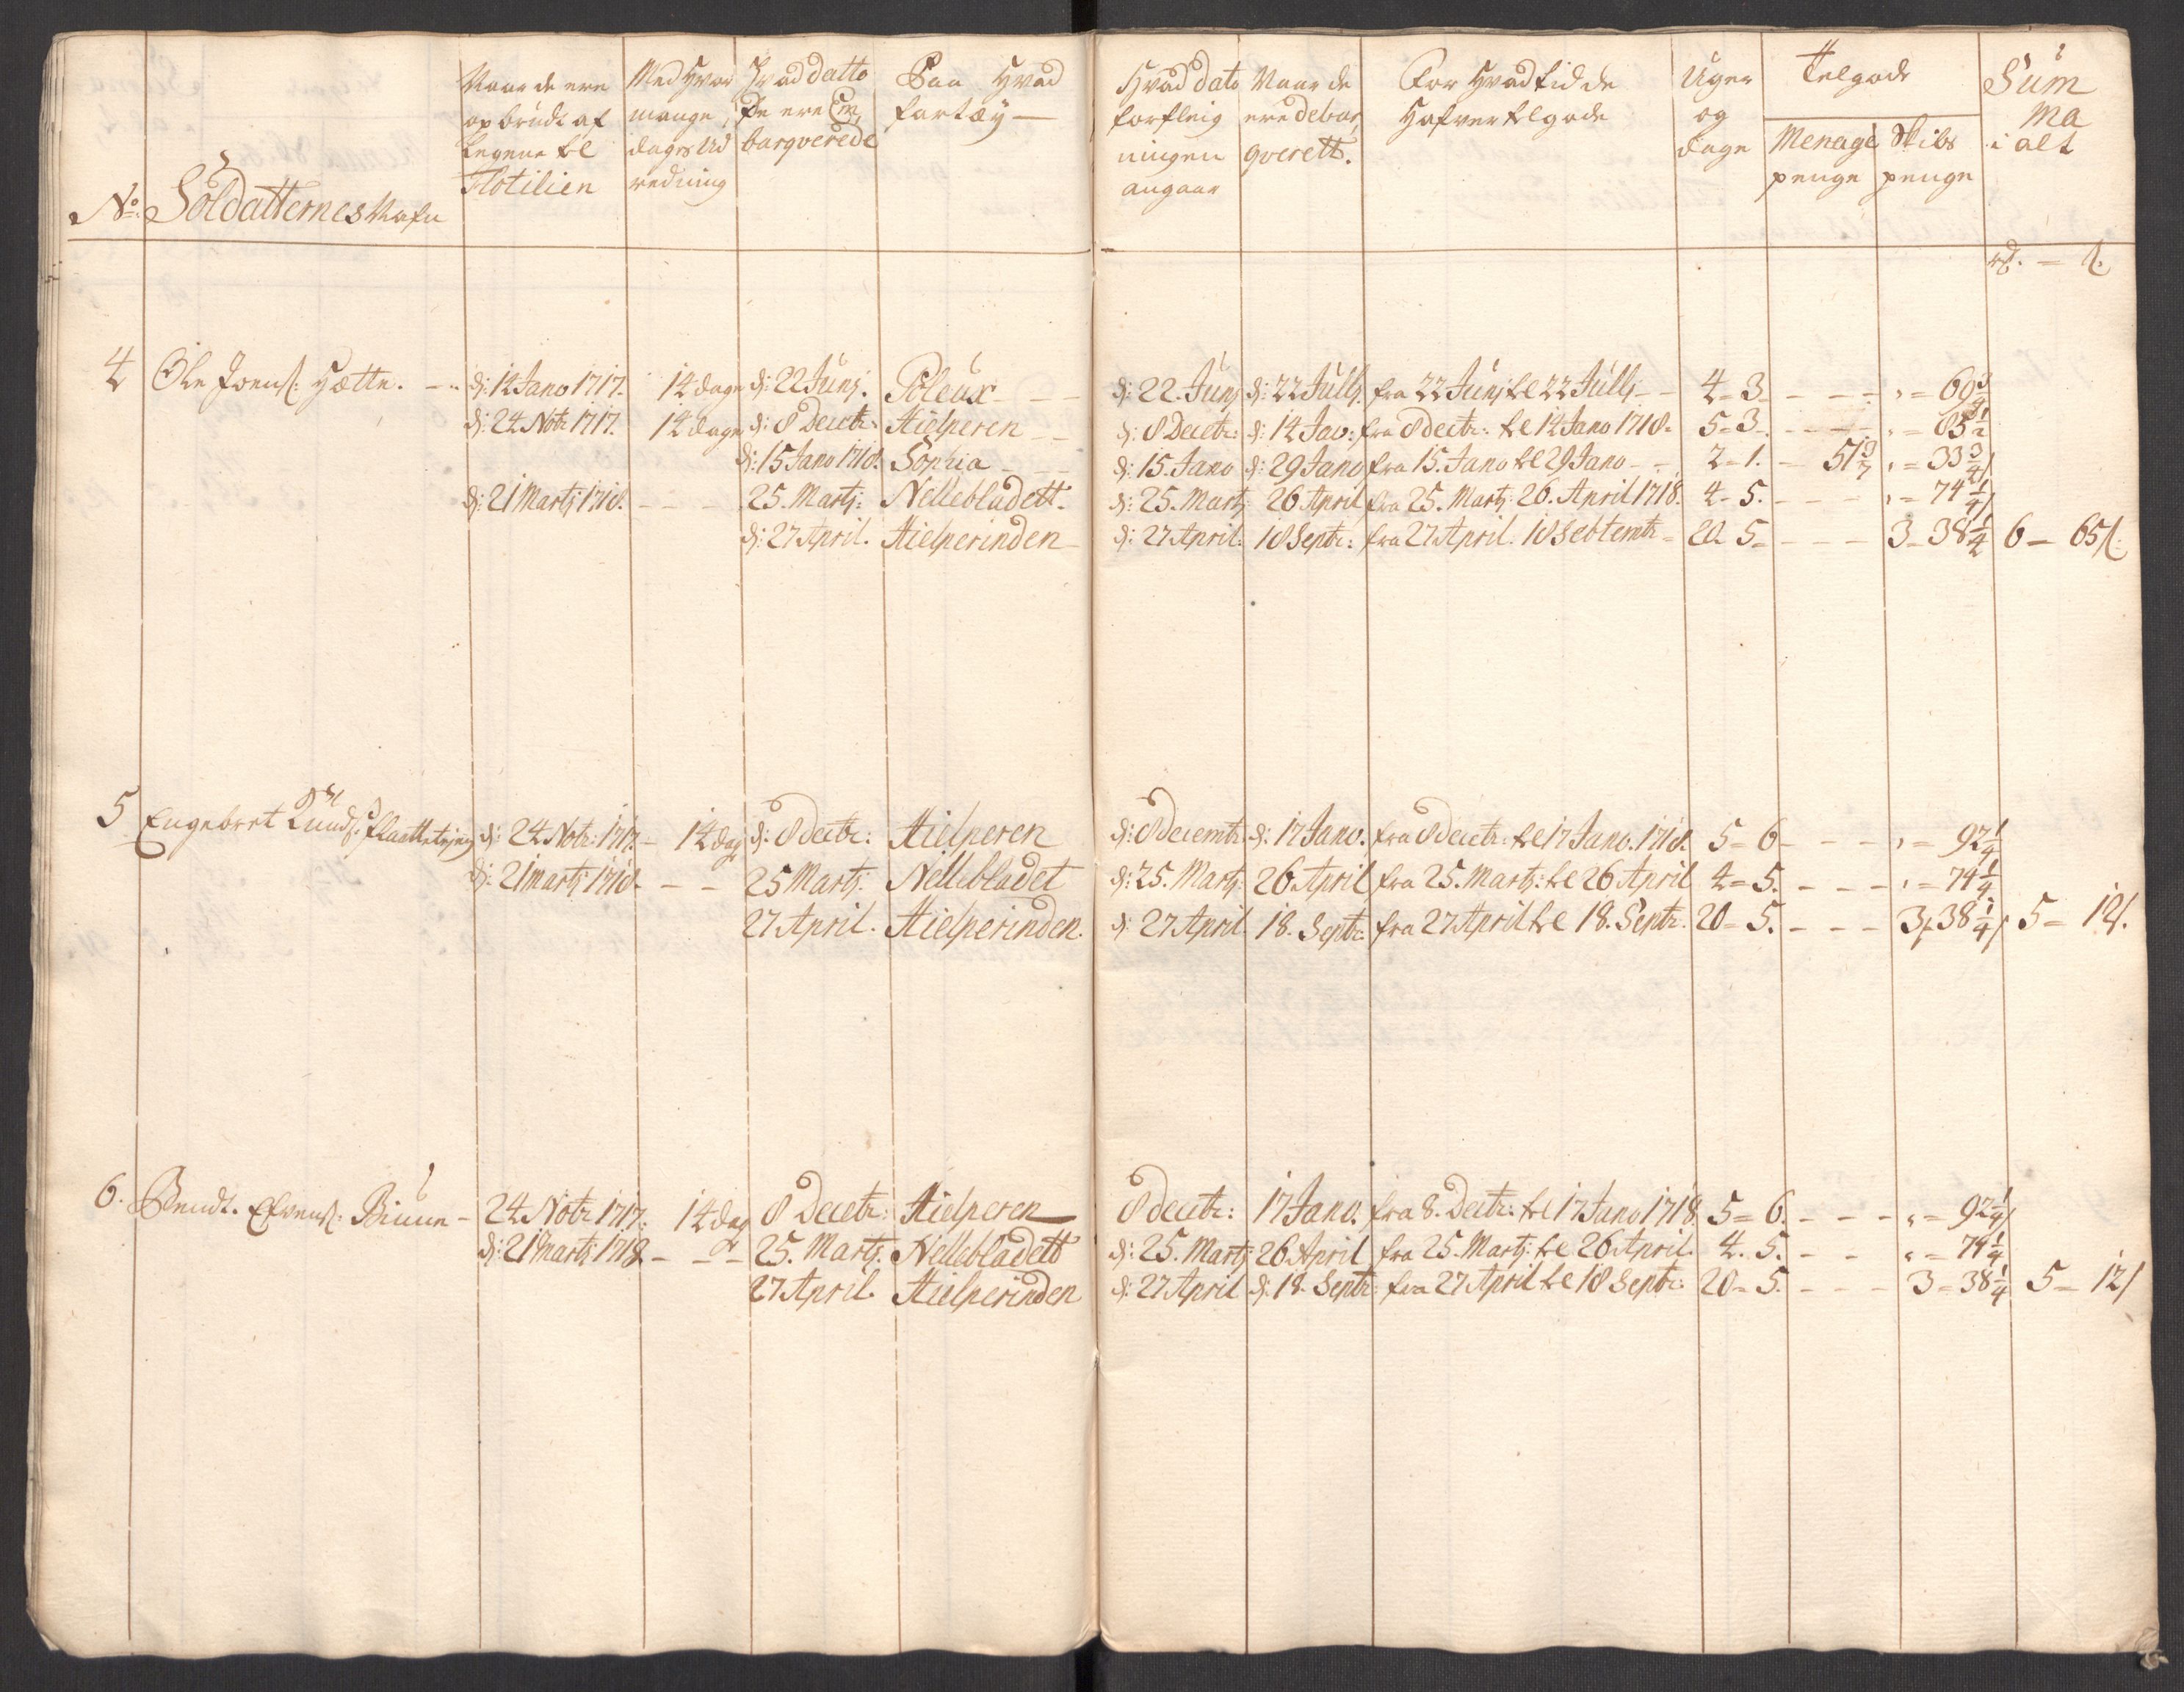 Naar de ere Med Hvor Hvad datto Paa Hvad Hvad dato Naar de For Hvad tid de Uger Tilgode Sum
opbrudt af mange De ere Em Fartøy — forfleig ere debar Hafver tilgode og ma
Legene til dages Ud barqverede ningen qverett. dage Menage Skibs i alt
Flotilien redning angaar penge penge
No. Soldatternes Nafn
rd. — s.
4 Ole Joens: Hette. d: 14 Jano 1717. 14 dage d: 22 Junj. Poleux d: 22. Junj d: 22 Jullj. fra 22 Junj til 22 Jullj 4=3 " = 69 3/4
d: 24 Notr 1717. 14 dage d: 8 Decetr: Hielperen d: 8 Decetr: d: 14 Jav: fra 8 dectr: til 14 Jano 1718. 5=3 " = 85 1/2
d: 15 Jano 1718. Sophia d: 15. Jano d: 29 Jano fra 15. Jano til 29 Jano 2=1. 51 3/7 " = 33 3/4
d: 21 Martj 1718. 25. Martj: Nellebladett. d: 25. Martj 26 April fra 25. Martj 26. April 1718. 4=5. " = 74 1/4
d: 27 April. Hielperinden d: 27 April: 18 Septr: fra 27 April. 18 Sebtembr 20=5 3=38 1/4 6 — 65 s.
5 Engebret Knuds: d: 24 Notr: 1717. 14 dag d: 8 dectr: Hielperen d: 8 Decembr d: 17 Jano. fra 8 Decetr: til 17 Jano. 1718. 5=6 " = 92 1/4
d: 21 martj 1718. 25 Martj: Nellebladet d: 25. Martj: 26 April fra 25. Martj: til 26 April 4=5. " = 74 1/4
27 April. Hielperinden. d: 27 April. 18. Septr: fra 27 April til 18. Septr. 20=5. 3=38 1/4 5= 12 s.
6. Bendt. Efvens: Biune 24 Notr 1717. 14 dag 8 Decetr: Hielperen 8 decetr: 17 Jano. fra 8. Dectr: til 17 Jano 1718. 5=6. " = 92 1/4
d: 21 martj 1718 25. Martj: Nellebladett d: 25. Martj 26 April fra 25. Martj: til 26 April. 4. 5. " = 74 1/4
27 April. Hielperinden d: 27 April d: 18. Septr: fra 27 April til 18 Septr: 20=5. 3=38 1/4 5= 12 s